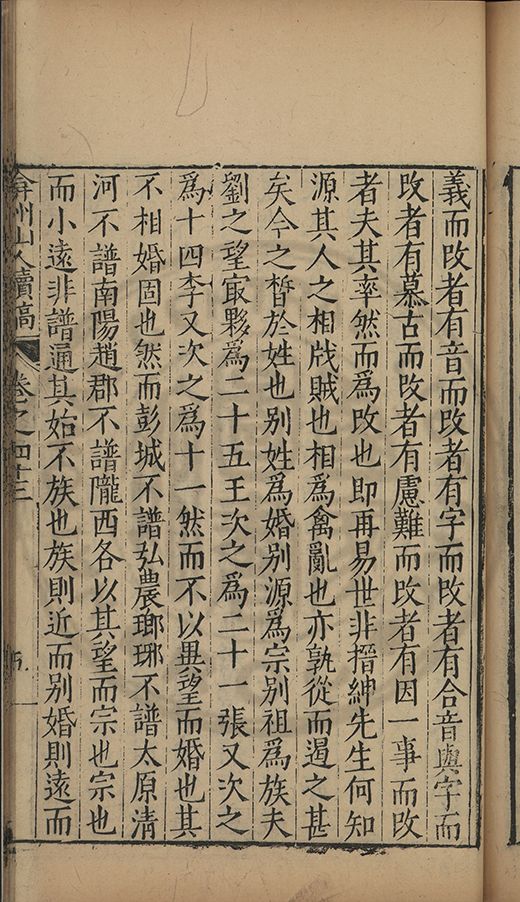 義而改者有音而改者有字而改者有合音與字而
改者有慕古而改者有慮難而改者有因一事而改
者夫其率然而爲改也即再易世非搢紳先生何知
源其人之相戕賊也相爲禽亂也亦孰從而遏之甚
矣今之晳於姓也别姓爲婚别源爲宗别祖爲族夫
劉之望㝡夥爲二十五王次之爲二十一張又次之
爲十四李又次之爲十一然而不以異望而婚也其
不相婚固也然而彭城不譜弘農瑯琊不譜太原清
河不譜南陽趙郡不譜隴西各以其望而宗也宗也
而小遠非譜通其始不族也族則近而别婚則遠而
弇州山人續稿 卷之四十三